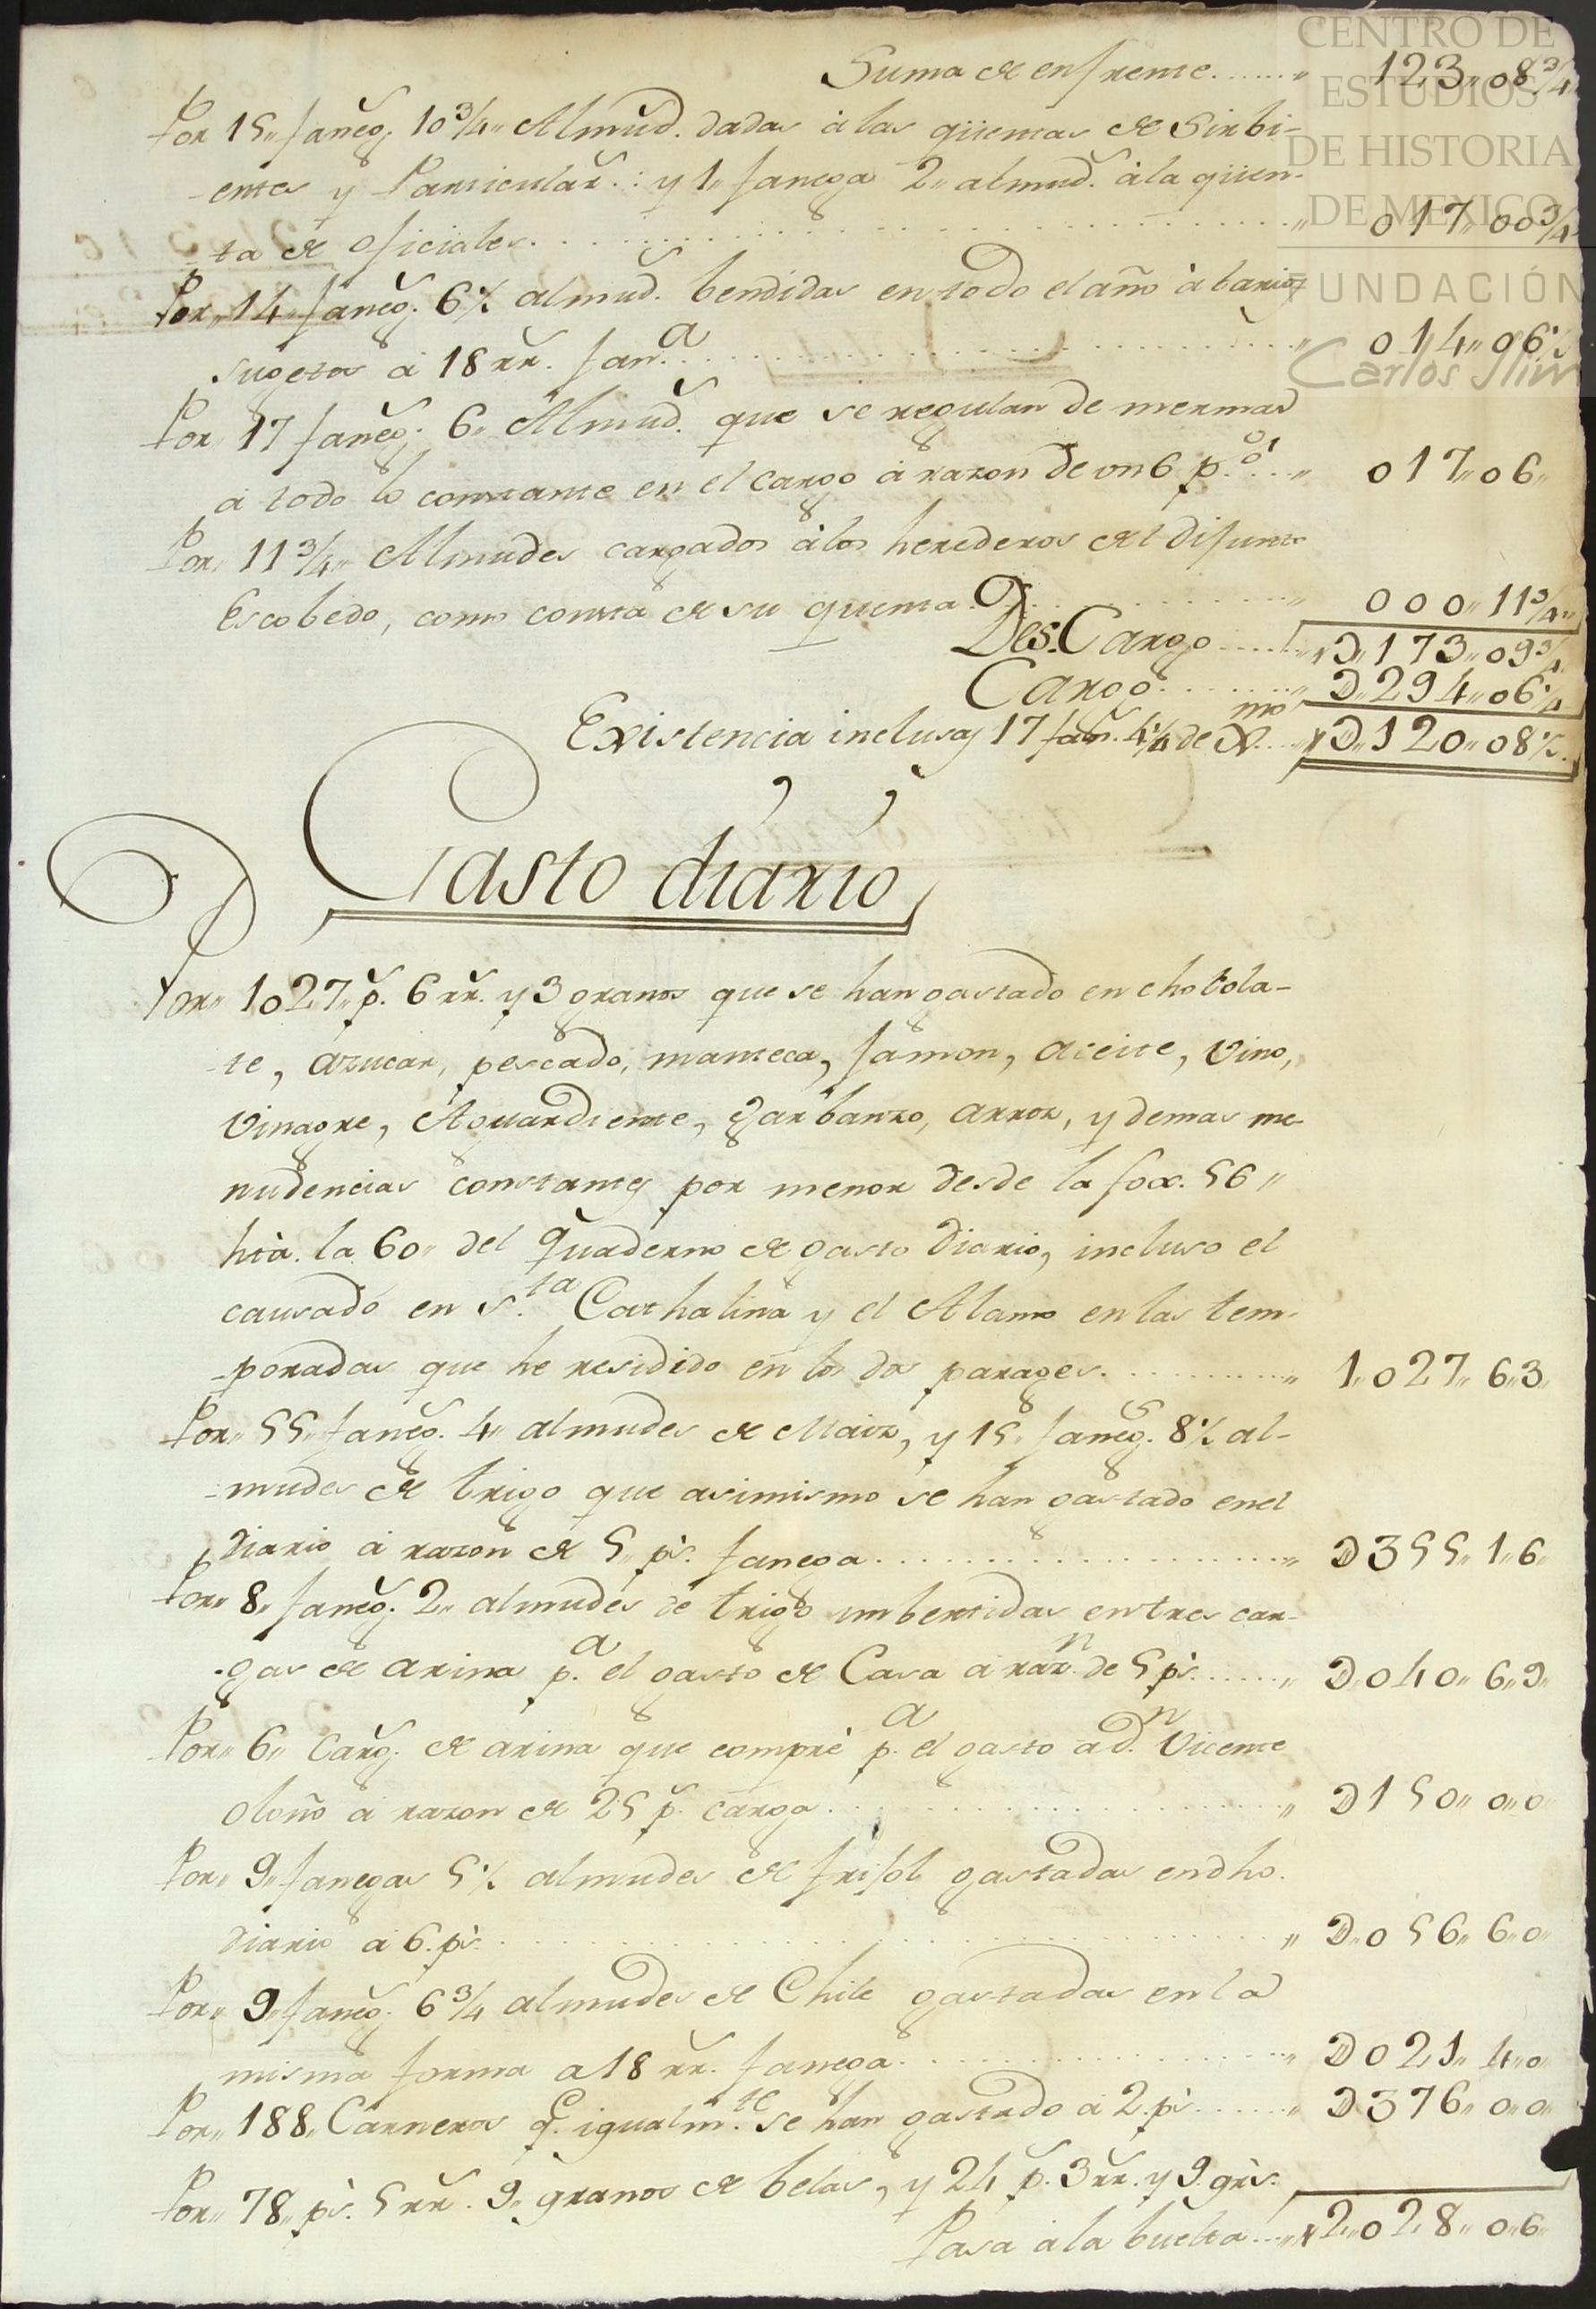 CENTRO DE
ESTUDIOS
DE HISTORIA
DE MEXICO
FUNDACIÓN
Carlos Slim
Suma de enfrente........,, 123,, 08 3/4
Por 15,, faneg.s 10 3/4,, Almud.s dadas á las qüentas de Sirbi-
-entes y Particular.s: y 1,, fanega 2,, almud.s á la qüen-
ta de oficiales........,, 017,, 00 3/4
Por,, 14 faneg.s 6 1/2 almud.s bendidas en todo el año á barios
sugetos á 18 rr.s fan.a........,, 014,, 06 1/2
Por 17 faneg.s 6,, Almud.s que se regulan de mermas
á todo lo constante en el cargo á razon de un 6 p.%....,, 017,, 06,,
Por,, 11 3/4,, Almudes cargados á los herederos del difunto
Escobedo, como consta de su quenta........,, 000,, 11 3/4,,
Des.Cargo........,, D,, 173,, 09 3/4
Cargo........,, D,, 294,, 06 1/4
Existencia inclusas 17 fan.s 4 1/4 de D.mo....,, D,, 120,, 08 1/2
Gasto diario,
Por,, 1027,, p.s 6 rr.s y 3 granos que se han gastado en chocola-
te, azucar, pescado, manteca, jamon, aceite, vino,
vinagre, Aguardiente, Garbanzo, arroz, y demas me-
nudencias constantes por menor desde la fox. 56,,
hta. la 60,, del Quaderno de gasto diario, incluso el
causado en S.ta Cathalina y el Alamo en las tem-
-poradas que he residido en los dos parages........,, 1,, 027,, 6,, 3,,
Por,, 55,, faneg.s 4,, almudes de Maiz, y 15,, faneg.s 8 1/2 al-
-mudes de trigo que asimismo se han gastado en el
diario á razon de 5,, p.s fanega........,, D 355,, 1,, 6,,
Por,, 8,, faneg.s 2,, almudes de trigo imbertidas en tres car-
-gas de arina p.a el gasto de Casa á raz.n de 5 p.s......,, D,, 040,, 6,, 9,,
Por,, 6,, Carg.s de arina que compré p.a el gasto a d.n Vicente
oloño á razon de 25 p.s carga........,, D 150,, 0,, 0,,
Por,, 9,, fanegas 5 1/2 almudes de frijol gastadas en dho.
diario á 6,, p.s........,, D,, 056,, 6,, 0,,
Por,, 9,, faneg.s 6 3/4 almudes de Chile gastadas en la
misma forma a 18 rr.s fanega........,, D 021,, 4,, 0
Por,, 188,, Carneros q.e igualm.te se han gastado á 2 p.s......,, D 376,, 0,, 0,,
Por,, 78,, p.s 5 rr.s 9,, granos de belas, y 24 p.s 3 rr.s y 9 gr.s
Pasa á la buelta....,, 2,, 028,, 0,, 6,,